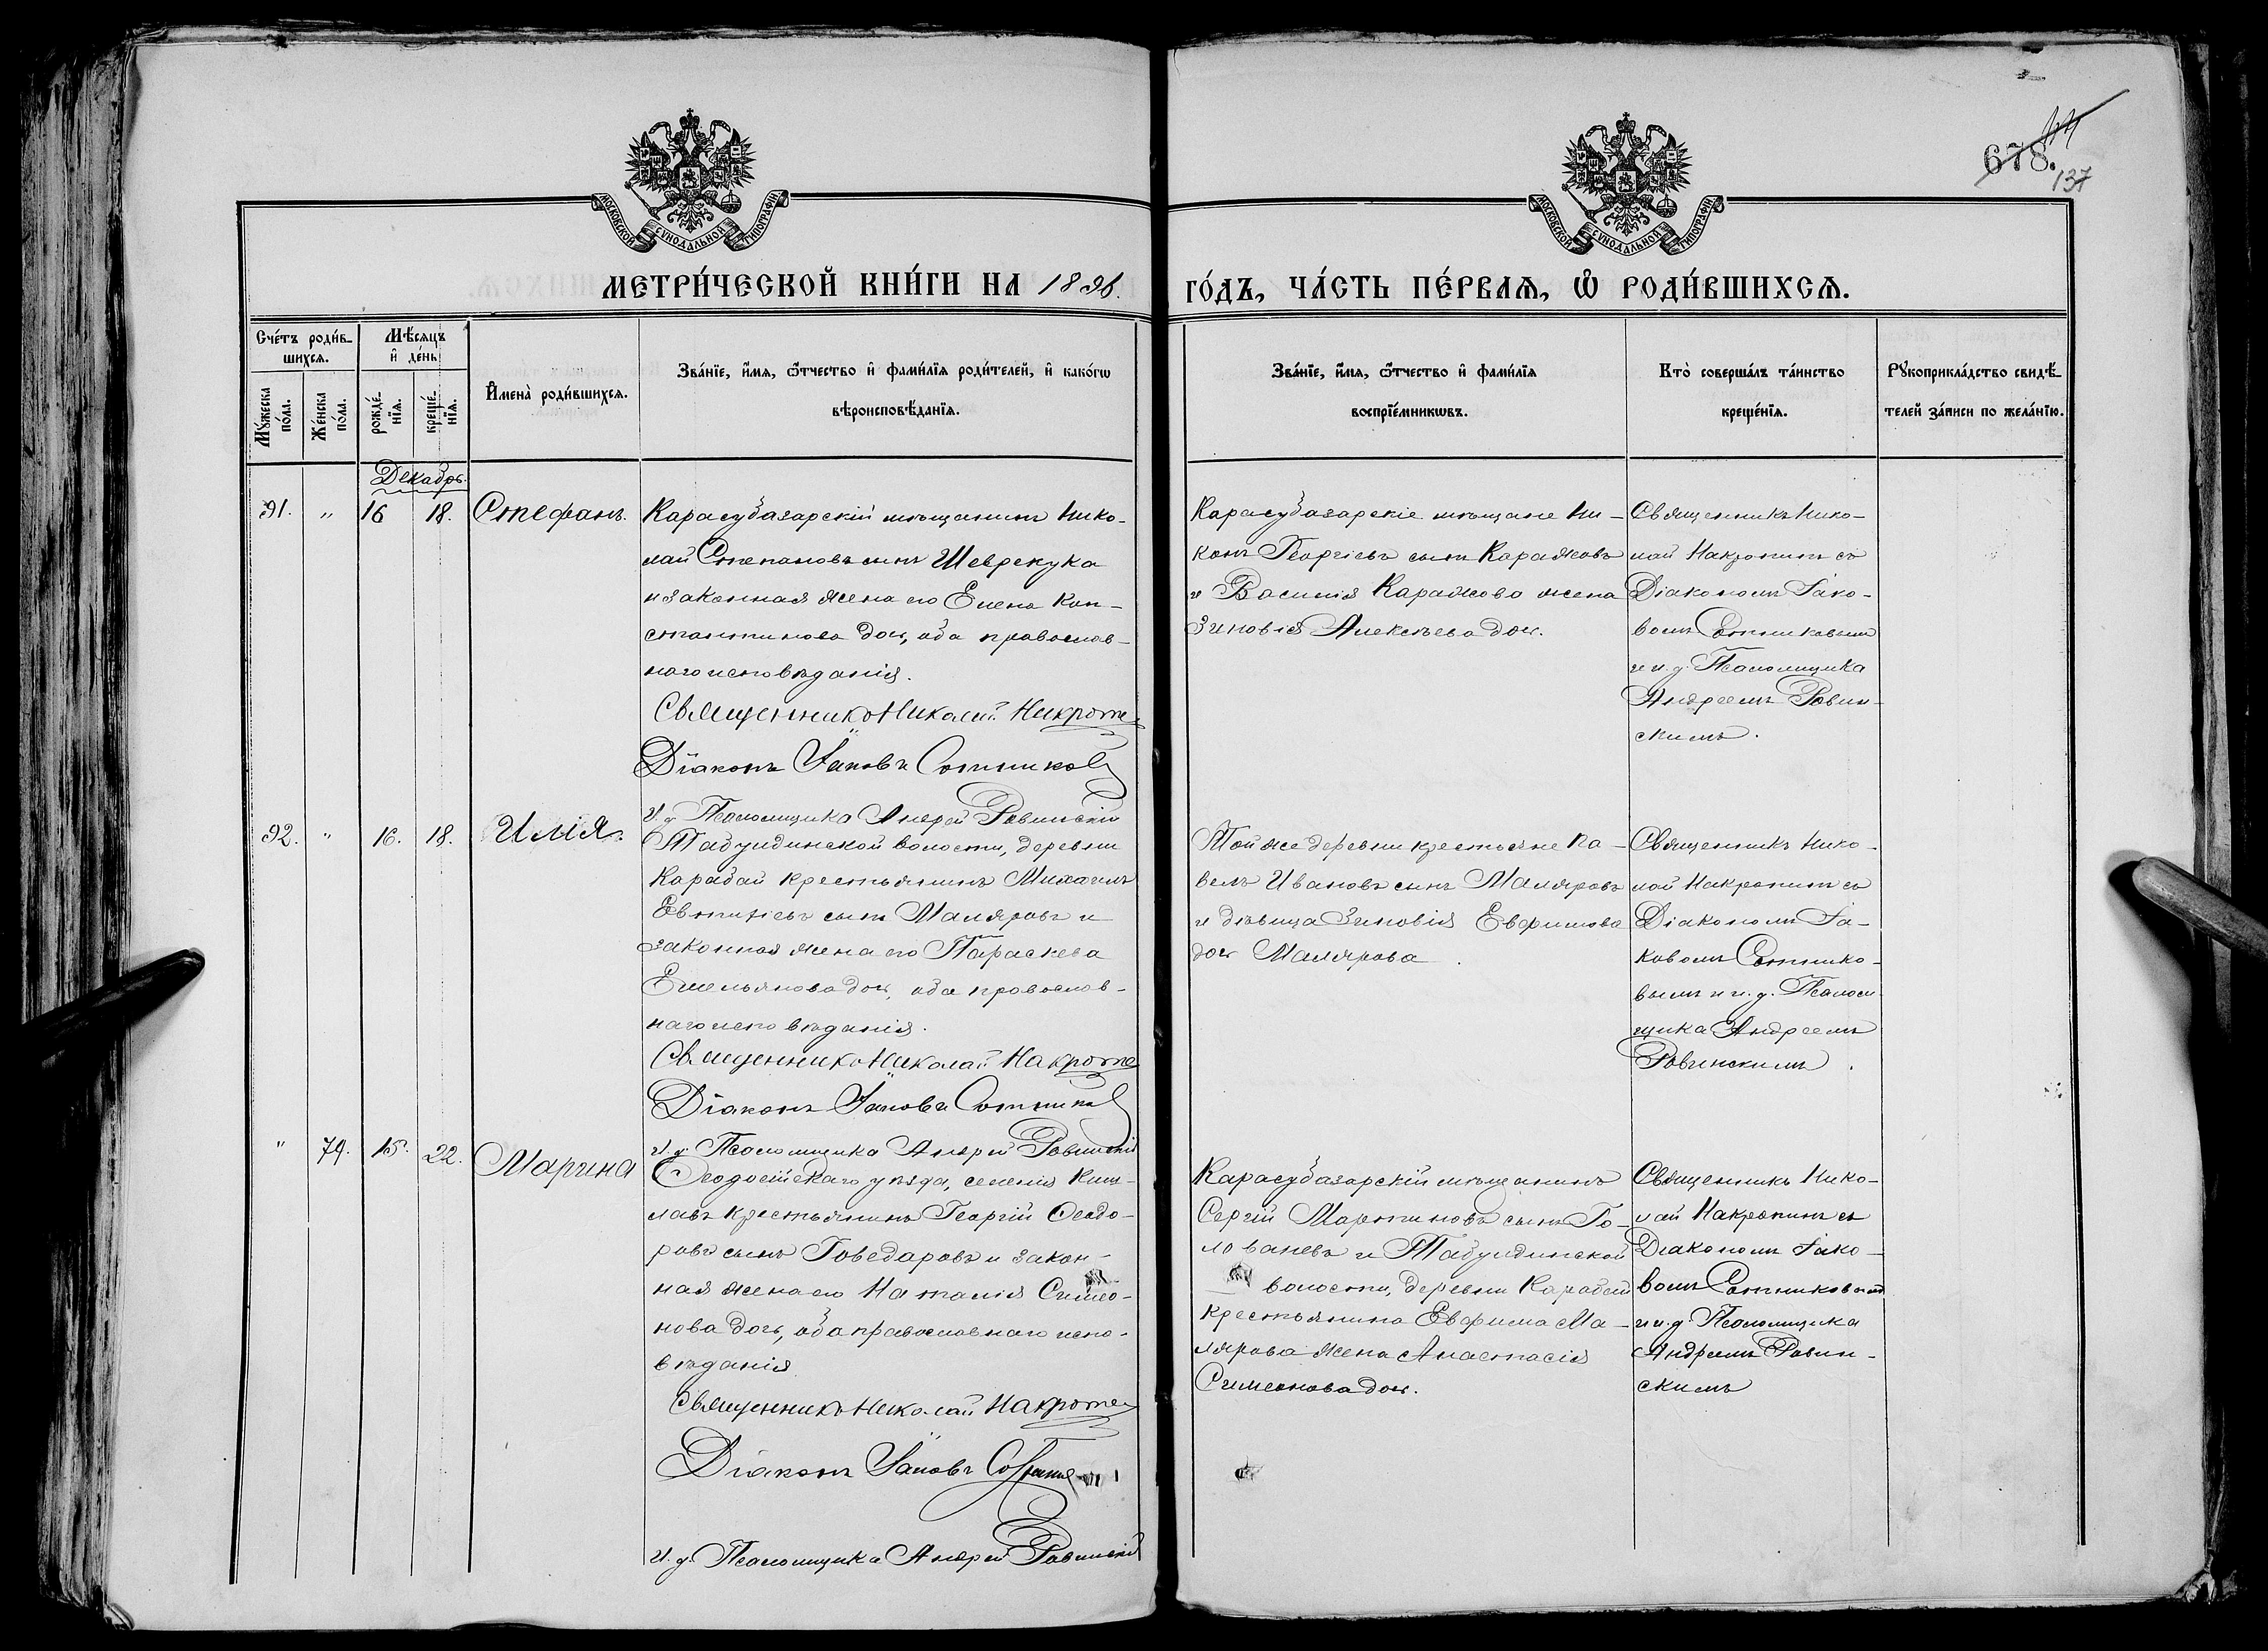 678.
137
МОСКОВСКОЙ СѴНОДАЛЬНОЙ ТИПОГРАФІИ.
МОСКОВСКОЙ СѴНОДАЛЬНОЙ ТИПОГРАФІИ.
МЕТРИ́ЧЕСКОЙ КНИ́ГИ НА 1896.
ГО́ДЪ, ЧА́СТЬ ПЕ́РВАѦ, Ѡ҆ РОДИ́ВШИХСѦ.
Сче́тъ роди́в-
шихсѧ.
Мꙋ́жеска по́ла.
Же́нска по́ла.
Мѣ́сѧцъ
и҆ де́нь
рожде́нїѧ.
креще́нїѧ.
И҆мена̀ роди́вшихсѧ.
Зва́нїе, и҆́мѧ, ѻ҆́тчество и҆ фами́лїѧ роди́телей, и҆ како́гѡ
вѣроисповѣ́данїѧ.
Зва́нїе, и҆́мѧ, ѻ҆́тчество и҆ фами́лїѧ
воспрїе́мникѡвъ.
Кто̀ соверша́лъ та́инство
креще́нїѧ.
Рꙋкоприкла́дство свидѣ́-
телей за́писи по жела́нїю.
Декабрь
91. " 16 18. Стефанъ.
Карасубазарскій мѣщанинъ Нико-
лай Степановъ сынъ Шеврекука
и законная жена его Елена Кон-
стантинова дочь, оба православ-
наго исповѣданія.
Священникъ Николай Накропи
Діаконъ Іаковъ Сотников
И. д. Псаломщика Андрей Ровинскій
Карасубазарскіе мѣщане Ни-
конъ Георгіевъ сынъ Каражовъ
и Василія Каражова жена
Зиновія Алексѣева дочь.
Священникъ Нико-
лай Накропинъ съ
Діакономъ Іако-
вомъ Сотниковымъ
и и. д. Псаломщика
Андреемъ Ровин-
скимъ.
92. " 16. 18. Илія.
Табулдинской волости, деревни
Карабай крестьянинъ Михаилъ
Евтихіевъ сынъ Маляровъ и
законная жена его Параскева
Емельянова дочь, оба православ-
наго исповѣданія.
Священникъ Николай Накропи
Діаконъ Іаковъ Сотников
И. д. Псаломщика Андрей Ровинскій
Той же деревни крестьяне Па-
велъ Ивановъ сынъ Маляровъ
и дѣвица Зиновія Евфимова
дочь Малярова.
Священникъ Нико-
лай Накропинъ съ
Діакономъ Іа-
ковомъ Сотнико-
вымъ и и. д. Псаломщика
Андреемъ
Ровинскимъ.
" 79. 15. 22. Марина
Ѳеодосійскаго уѣзда, селенія Киш-
лавъ крестьянинъ Георгій Ѳеодо-
ровъ сынъ Говедаровъ и закон-
ная жена его Наталія Симео-
нова дочь, оба православнаго испо-
вѣданія
Священникъ Николай Накропи
Діаконъ Іаковъ
И. д. Псаломщика Андрей Ровинскій
Карасубазарскій мѣщанинъ
Сергій Мартиновъ сынъ Го-
ловачевъ и Табулдинской
волости, деревни Карабай
крестьянина Евфима Ма-
лярова жена Анастасія
Симеонова дочь.
Священникъ Нико-
лай Накропинъ съ
Діакономъ Іако-
вомъ Сотниковымъ
и и. д. Псаломщика
Андреемъ Ровин-
скимъ